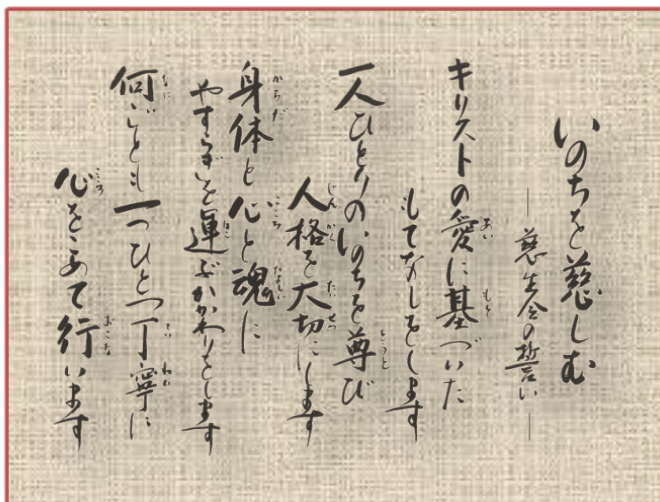 いのちを慈しむ
―慈生会の誓い―
キリストの愛に基づいた
もてなしをします
一人ひとりのいのちを尊び
人格を大切にします
身体と心と魂に
やすらぎを運ぶかかわりをします
何ごとも一つひとつ丁寧に
心をこめて行います